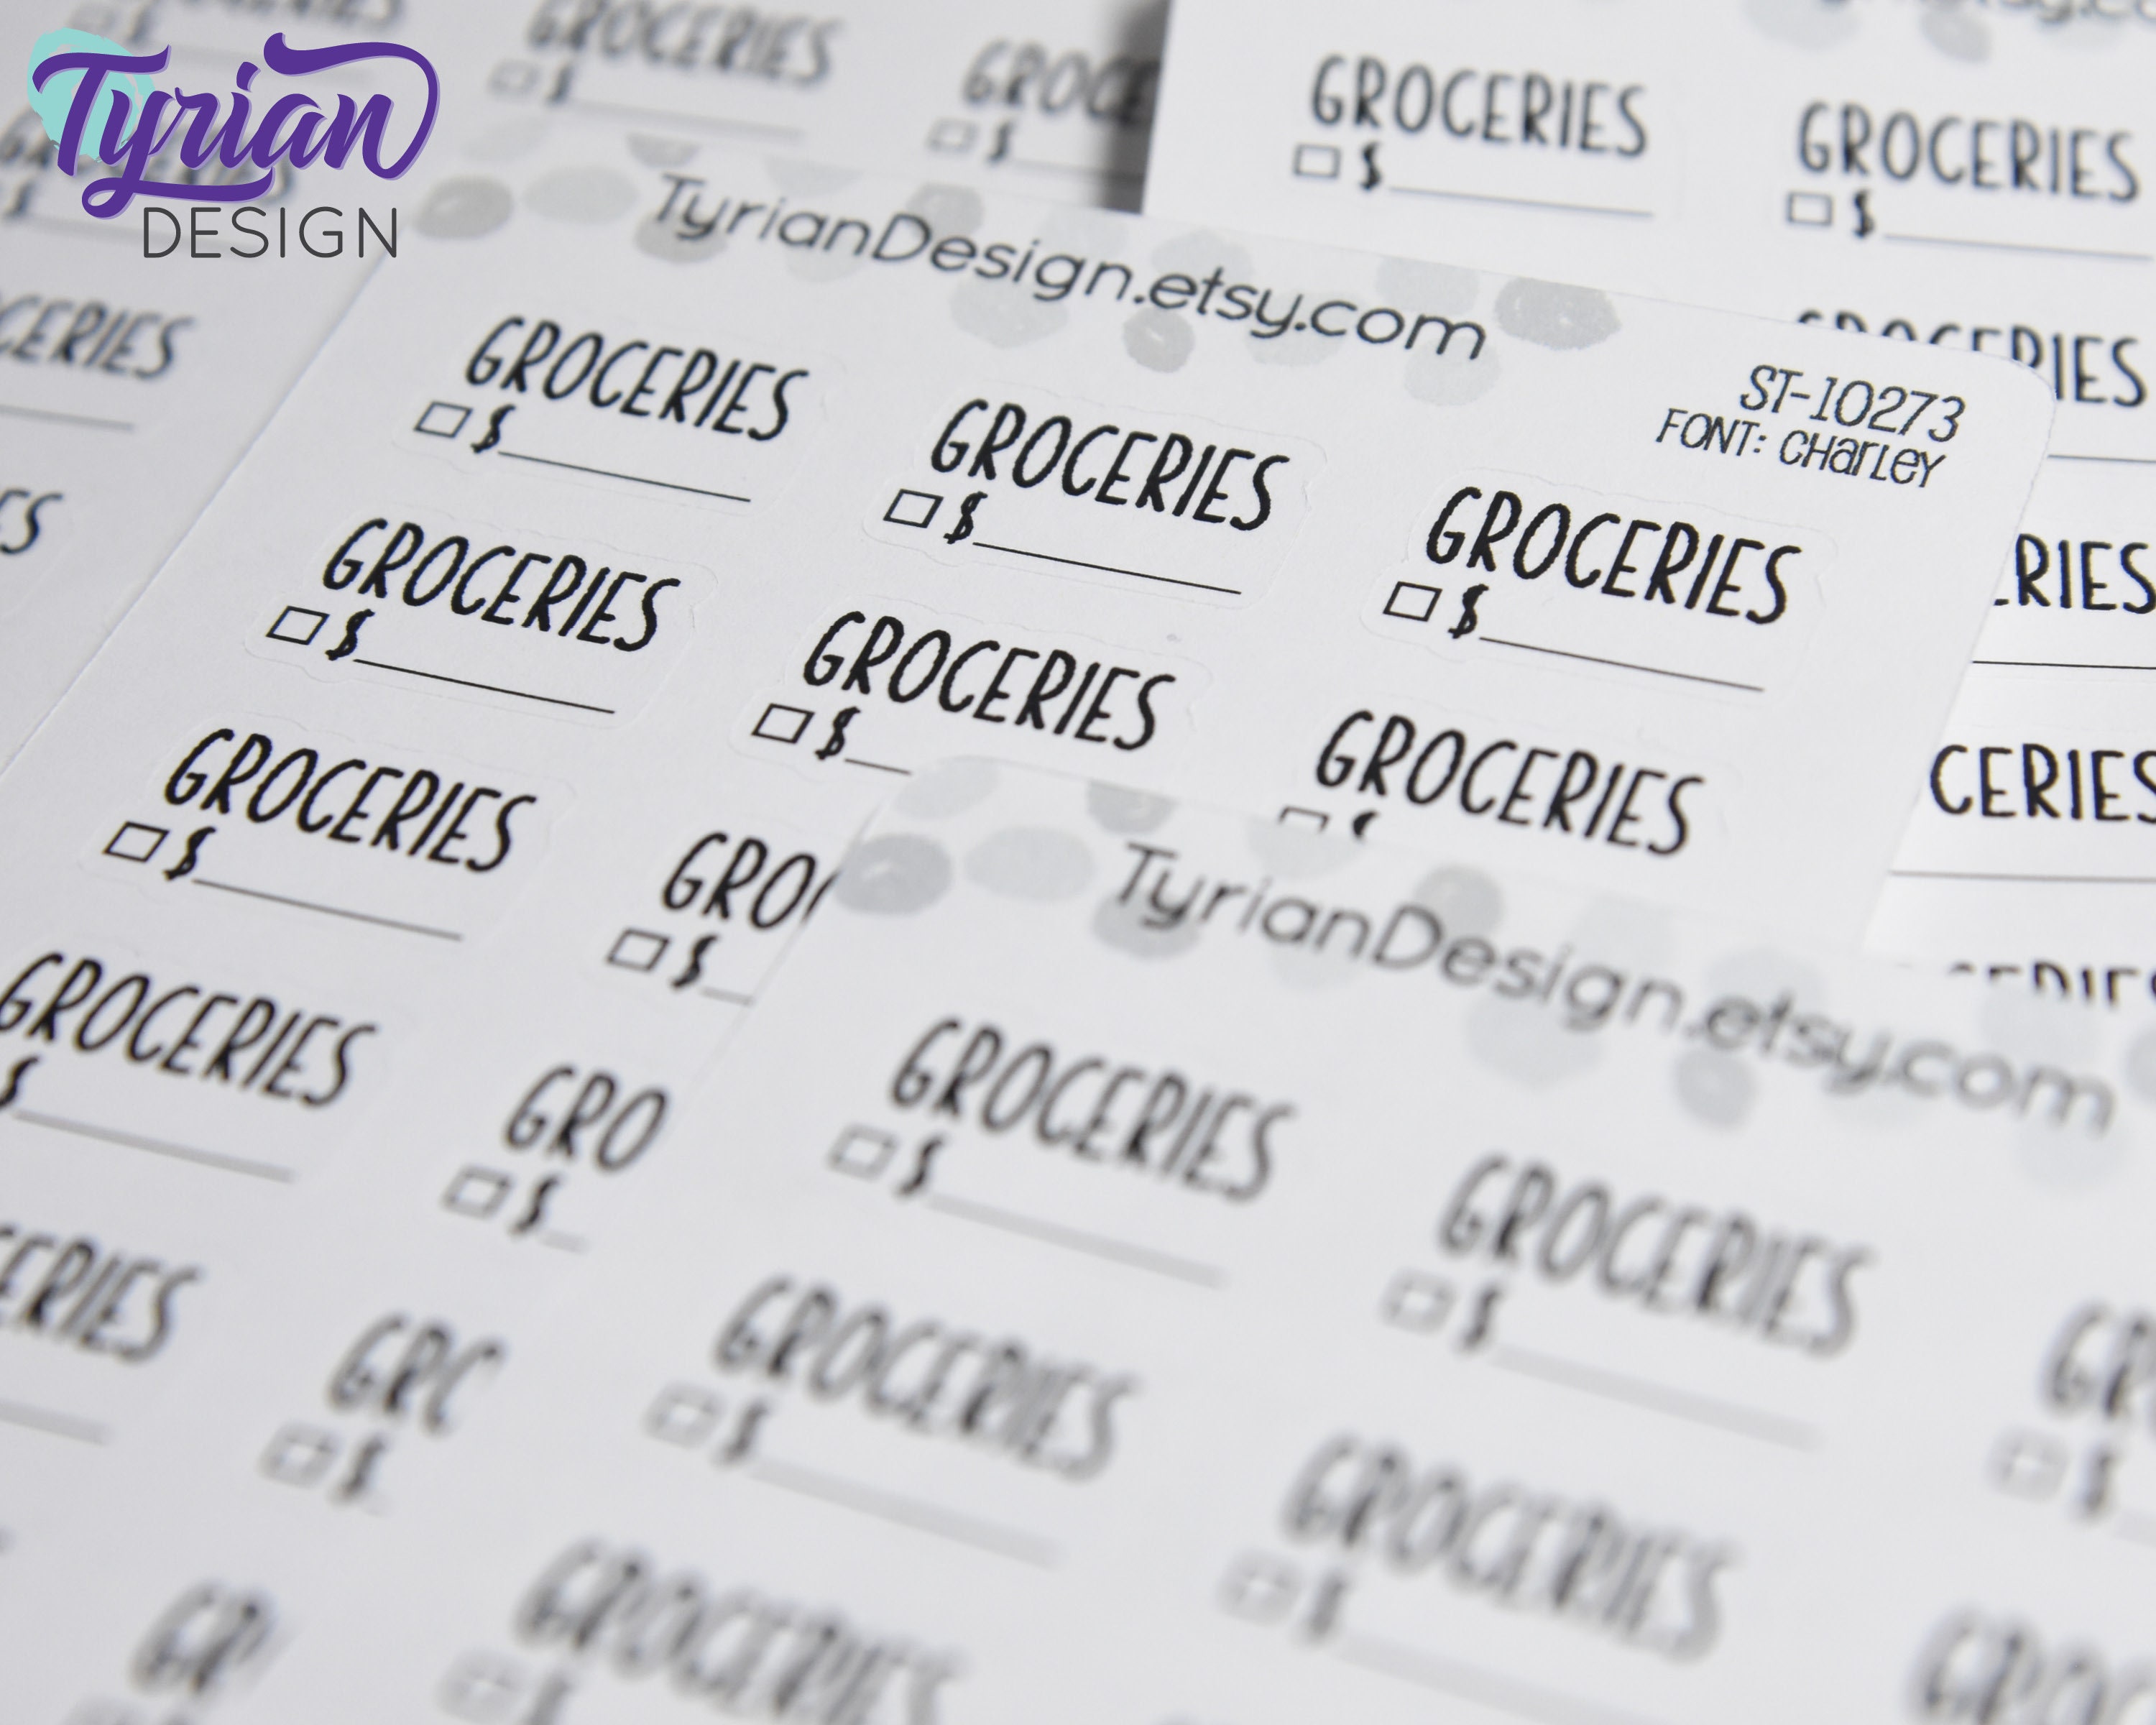 Tyrian
DESIGN
GROCERIES
$
GROCERIES
$
GROCERIES
$
GROCERIES
$
TyrianDesign.etsy.com
ST-10273
FONT: CHarLeY
GROCERIES
$
GROCERIES
$
GROCERIES
$
GROCERIES
$
GROCERIES
$
GROCERIES
GROCERIES
$
GRO
$
GROCERIES
$
GRO
$
TyrianDesign.etsy.com
GROCERIES
$
GROCERIES
$
GROCERIES
$
GROCERIES
$
GROCERIES